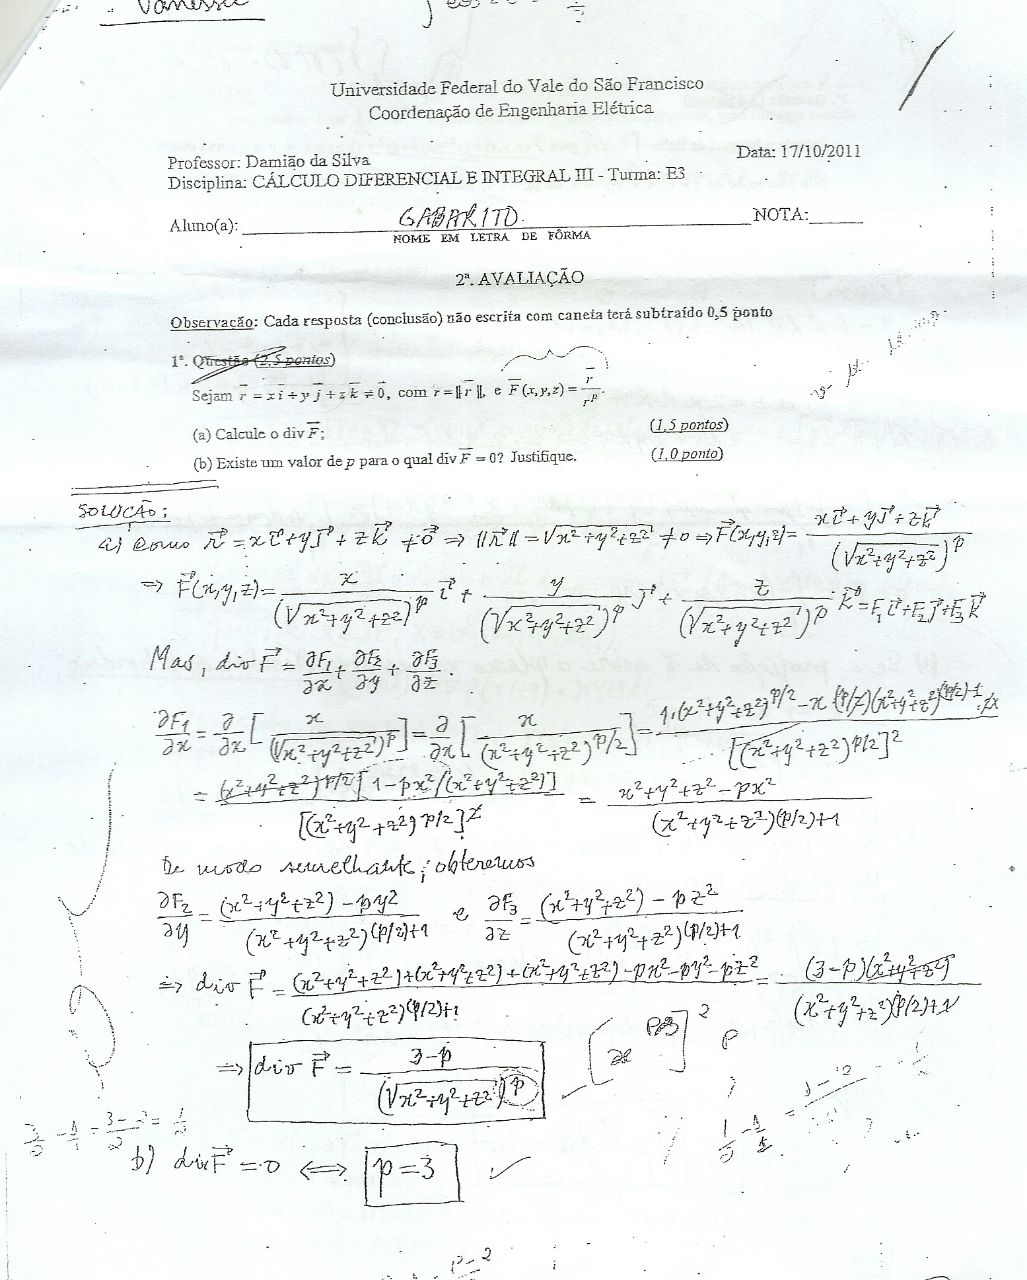 Vanessa
Universidade Federal do Vale do São Francisco
Coordenação de Engenharia Elétrica
Professor: Damião da Silva
Data: 17/10/2011
Disciplina: CÁLCULO DIFERENCIAL E INTEGRAL III - Turma: E3
Aluno(a): GABARITO. NOTA:
NOME EM LETRA DE FÔRMA
2ª. AVALIAÇÃO
Observação: Cada resposta (conclusão) não escrita com caneta terá subtraído 0,5 ponto
1ª. Questão (2,5 pontos)
Sejam r⃗ = x i⃗ + y j⃗ + z k⃗ ≠ 0⃗, com r = ‖r⃗‖, e F⃗(x,y,z) = r⃗/r^p.
(a) Calcule o div F⃗; (1,5 pontos)
(b) Existe um valor de p para o qual div F⃗ = 0? Justifique. (1,0 ponto)
SOLUÇÃO:
a) Como r⃗ = x i⃗ + y j⃗ + z k⃗ ≠ 0⃗ ⇒ ‖r⃗‖ = √(x²+y²+z²) ≠ 0 ⇒ F⃗(x,y,z) = (x i⃗ + y j⃗ + z k⃗)/(√(x²+y²+z²))^p
⇒ F⃗(x,y,z) = x/(√(x²+y²+z²))^p i⃗ + y/(√(x²+y²+z²))^p j⃗ + z/(√(x²+y²+z²))^p k⃗ = F₁ i⃗ + F₂ j⃗ + F₃ k⃗
Mas, div F⃗ = ∂F₁/∂x + ∂F₂/∂y + ∂F₃/∂z.
∂F₁/∂x = ∂/∂x [x/(√(x²+y²+z²))^p] = ∂/∂x [x/(x²+y²+z²)^(p/2)] = (1.(x²+y²+z²)^(p/2) - x (p/2)(x²+y²+z²)^((p/2)-1) . 2x)/[(x²+y²+z²)^(p/2)]²
= (x²+y²+z²)^(p/2) [1 - px²/(x²+y²+z²)]/[(x²+y²+z²)^(p/2)]² = (x²+y²+z² - px²)/(x²+y²+z²)^((p/2)+1)
De modo semelhante, obteremos
∂F₂/∂y = ((x²+y²+z²) - py²)/(x²+y²+z²)^((p/2)+1) e ∂F₃/∂z = ((x²+y²+z²) - pz²)/(x²+y²+z²)^((p/2)+1)
⇒ div F⃗ = ((x²+y²+z²)+(x²+y²+z²)+(x²+y²+z²) - px² - py² - pz²)/(x²+y²+z²)^((p/2)+1) = (3-p)(x²+y²+z²)/(x²+y²+z²)^((p/2)+1)
⇒ div F⃗ = (3-p)/(√(x²+y²+z²))^p
b) div F⃗ = 0 ⇔ p = 3